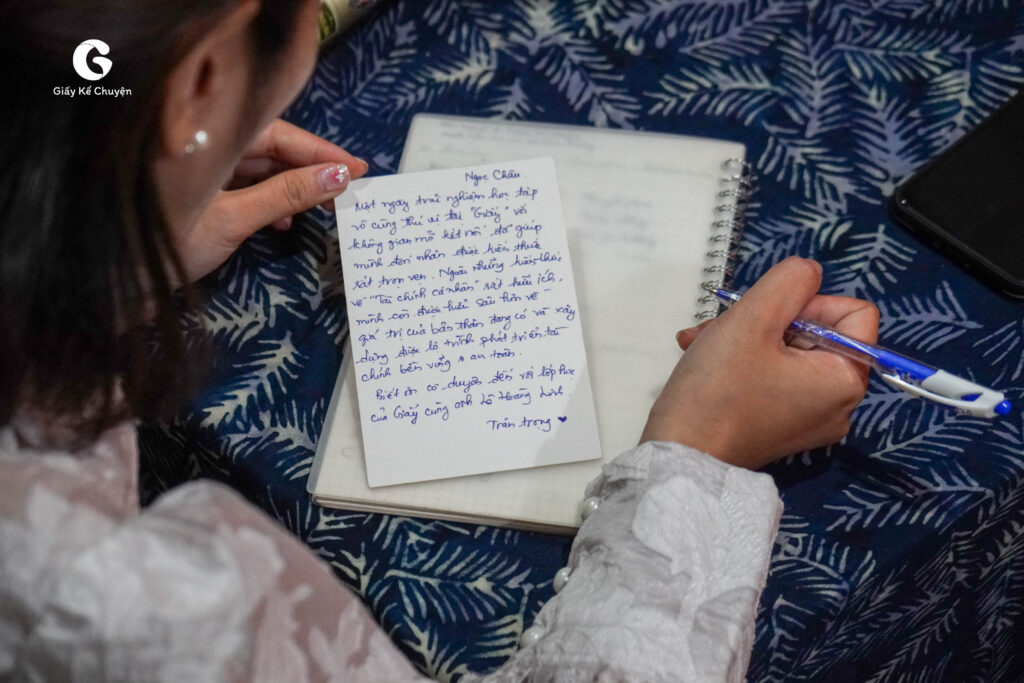 Giấy Kể Chuyện
Ngọc Châu.
Một ngày trải nghiệm học tập
vô cùng thú vị tại "Giấy" với
không gian mở kết nối đã giúp
mình đón nhận được kiến thức
rất trọn vẹn. Ngoài những kiến thức
về "Tài chính cá nhân" rất hữu ích,
mình còn được hiểu sâu hơn về
giá trị của bản thân đang có và xây
dựng được lộ trình phát triển tài
chính bền vững & an toàn.
Biết ơn cơ duyên đến với lớp học
của Giấy cùng anh Hoàng Linh.
Trân trọng